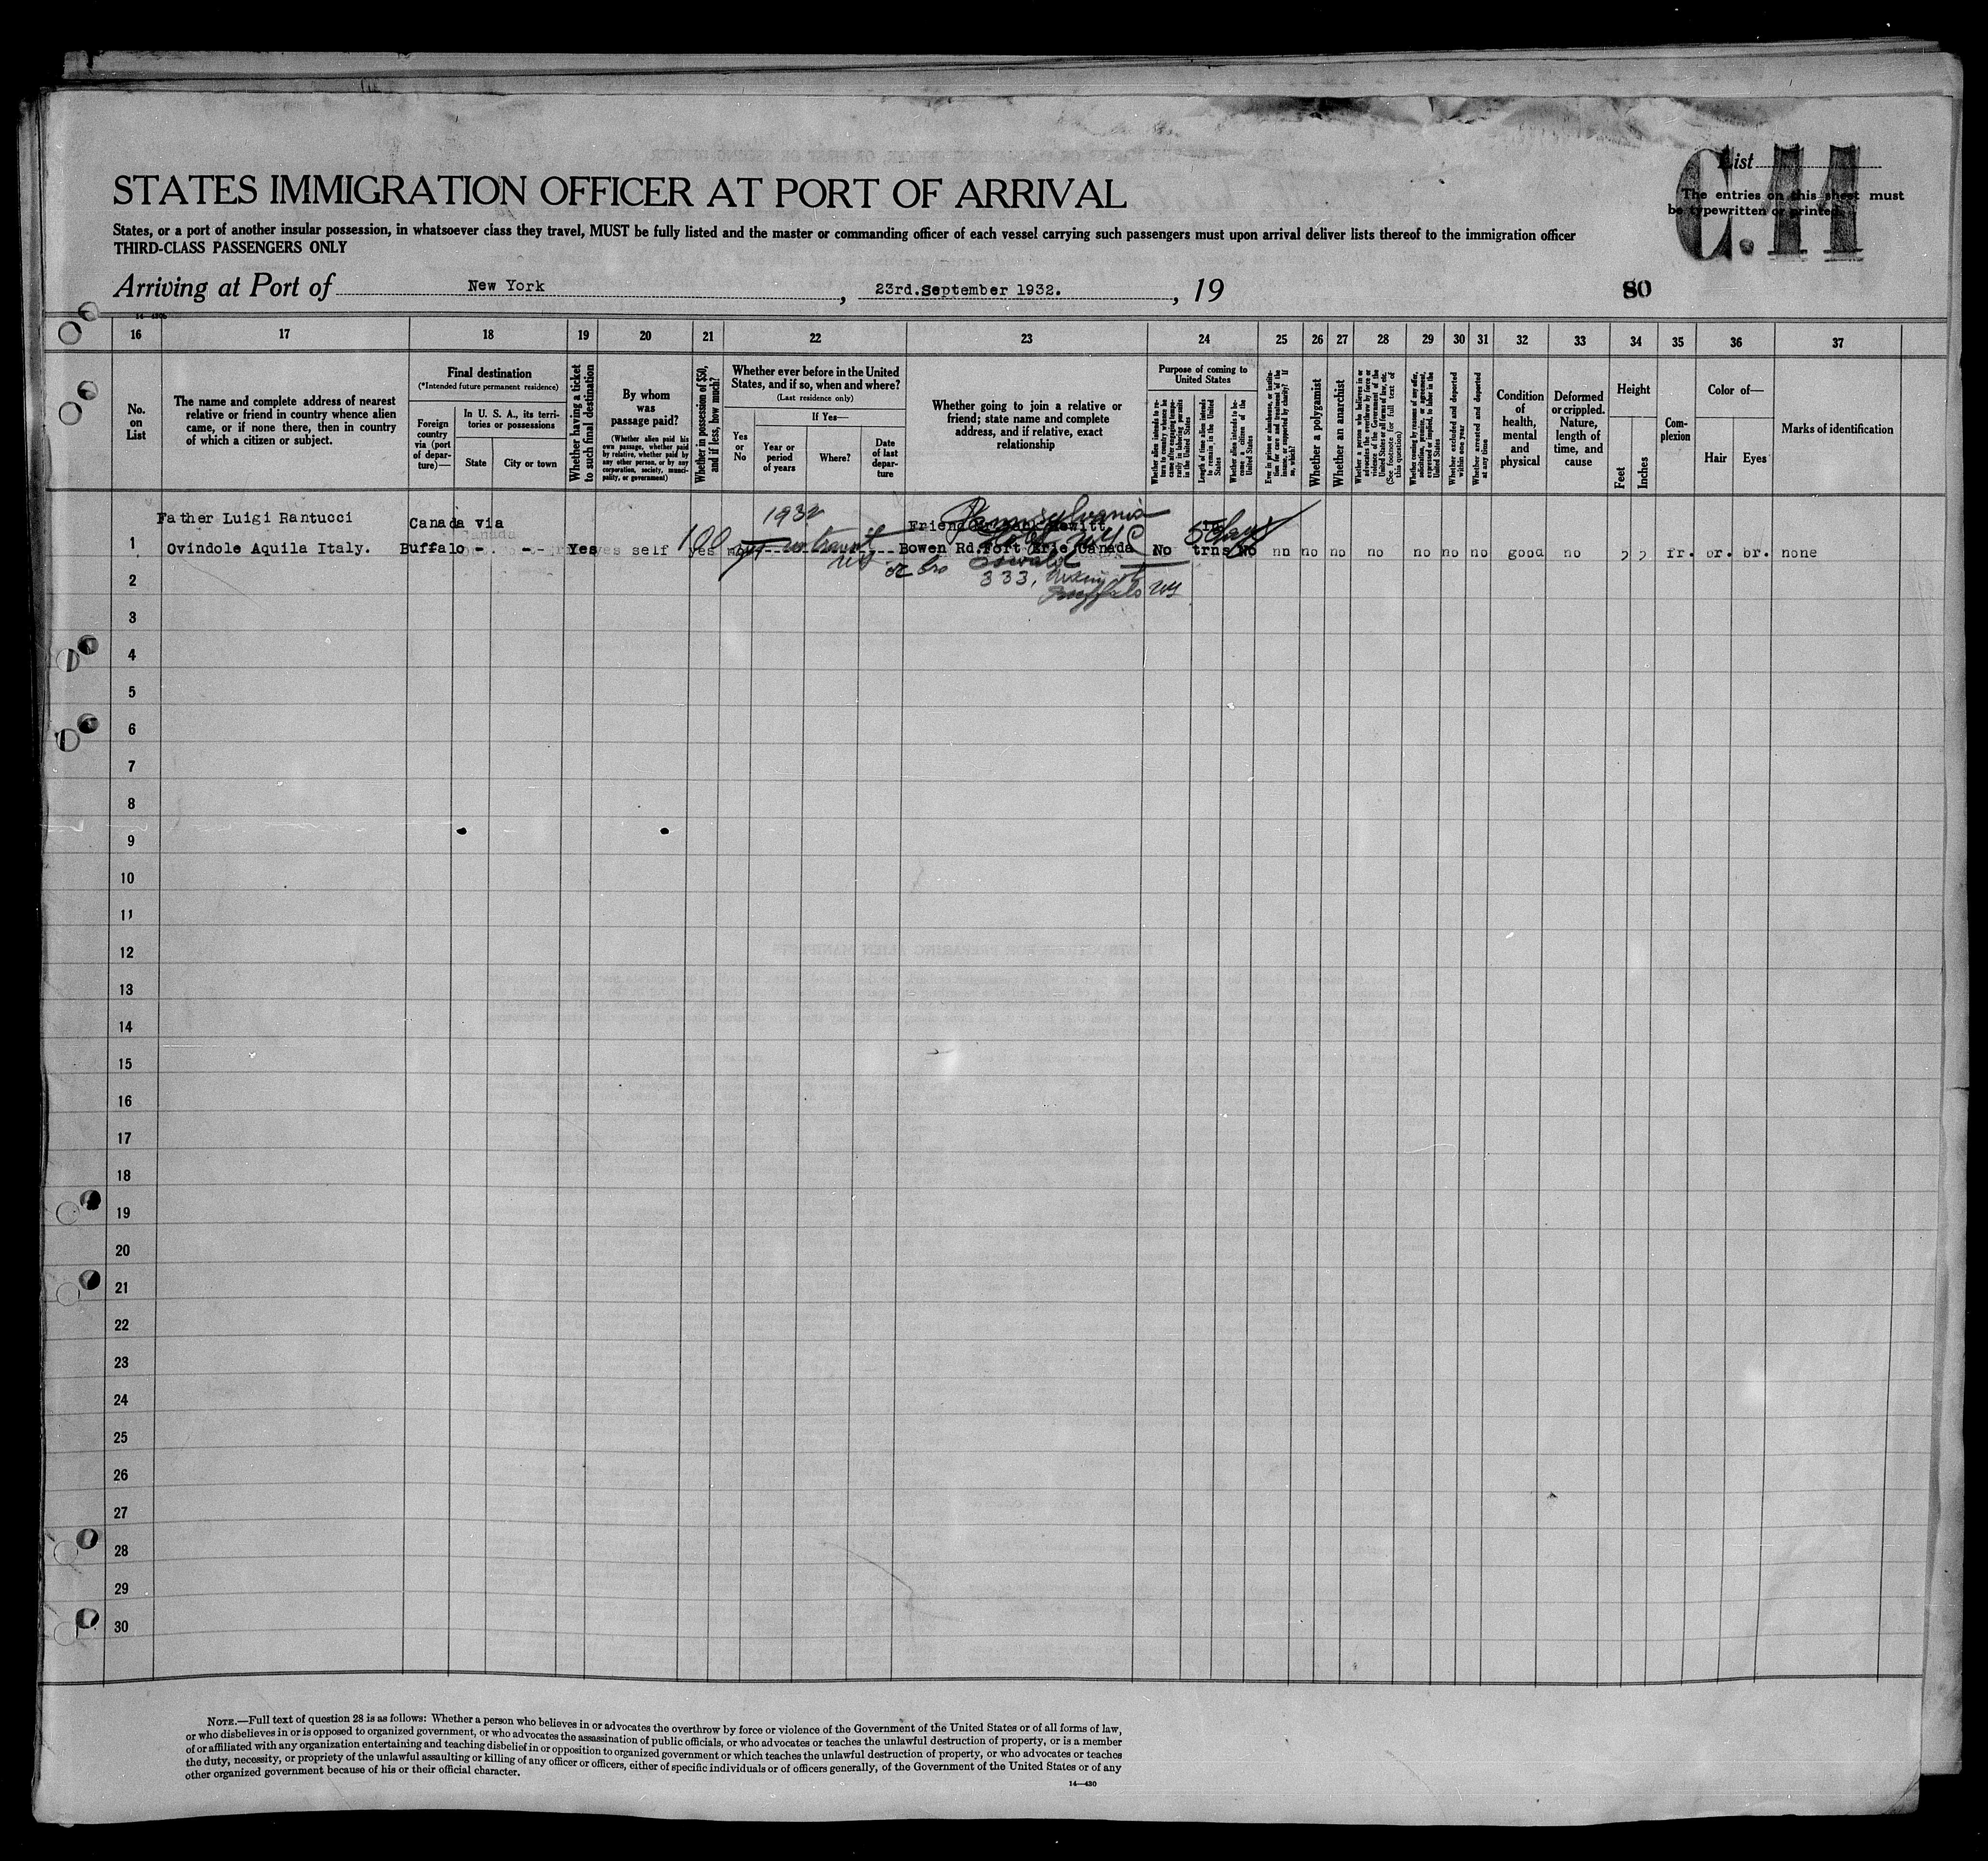 List
C.11
The entries on this sheet must
be typewritten or printed.
STATES IMMIGRATION OFFICER AT PORT OF ARRIVAL
States, or a port of another insular possession, in whatsoever class they travel, MUST be fully listed and the master or commanding officer of each vessel carrying such passengers must upon arrival deliver lists thereof to the immigration officer
THIRD-CLASS PASSENGERS ONLY
Arriving at Port of New York, 23rd.September 1932., 19
80
16 17 18 19 20 21 22 23 24 25 26 27 28 29 30 31 32 33 34 35 36 37
No. on List
The name and complete address of nearest relative or friend in country whence alien came, or if none there, then in country of which a citizen or subject.
Final destination
(*Intended future permanent residence)
Foreign country via (port of departure)—
In U. S. A., its territories or possessions
State
City or town
Whether having a ticket to such final destination
By whom was passage paid?
(Whether alien paid his own passage, whether paid by relative, whether paid by any other person, or by any corporation, society, municipality, or government)
Whether in possession of $50, and if less, how much?
Whether ever before in the United States, and if so, when and where?
(Last residence only)
Yes or No
If Yes—
Year or period of years
Where?
Date of last departure
Whether going to join a relative or friend; state name and complete address, and if relative, exact relationship
Purpose of coming to United States
Whether alien intends to return to country whence he came after engaging temporarily in laboring pursuits in the United States
Length of time alien intends to remain in the United States
Whether alien intends to become a citizen of the United States
Ever in prison or almshouse, or institution for care and treatment of the insane, or supported by charity? If so, which?
Whether a polygamist
Whether an anarchist
Whether a person who believes in or advocates the overthrow by force or violence of the Government of the United States or all forms of law, etc. (See footnote for full text of this question)
Whether coming by reasons of any offer, solicitation, promise, or agreement, expressed or implied, to labor in the United States
Whether excluded and deported within one year
Whether arrested and deported at any time
Condition of health, mental and physical
Deformed or crippled. Nature, length of time, and cause
Height
Feet
Inches
Complexion
Color of—
Hair
Eyes
Marks of identification
Father Luigi Rantucci Canada via 1932 Pennsylvania Friend 5 days
1 Ovindole Aquila Italy. Buffalo Yes self 100 yes in transit Bowen Rd.Fort Erie Canada No trns No no no no no no no no good no fr. br. br. none
333,
Buffalo NY
2
3
4
5
6
7
8
9
10
11
12
13
14
15
16
17
18
19
20
21
22
23
24
25
26
27
28
29
30
NOTE.—Full text of question 28 is as follows: Whether a person who believes in or advocates the overthrow by force or violence of the Government of the United States or of all forms of law,
or who disbelieves in or is opposed to organized government, or who advocates the assassination of public officials, or who advocates or teaches the unlawful destruction of property, or is a member
of or affiliated with any organization entertaining and teaching disbelief in or opposition to organized government or which teaches the unlawful destruction of property, or who advocates or teaches
the duty, necessity, or propriety of the unlawful assaulting or killing of any officer or officers, either of specific individuals or of officers generally, of the Government of the United States or of any
other organized government because of his or their official character.
14—430